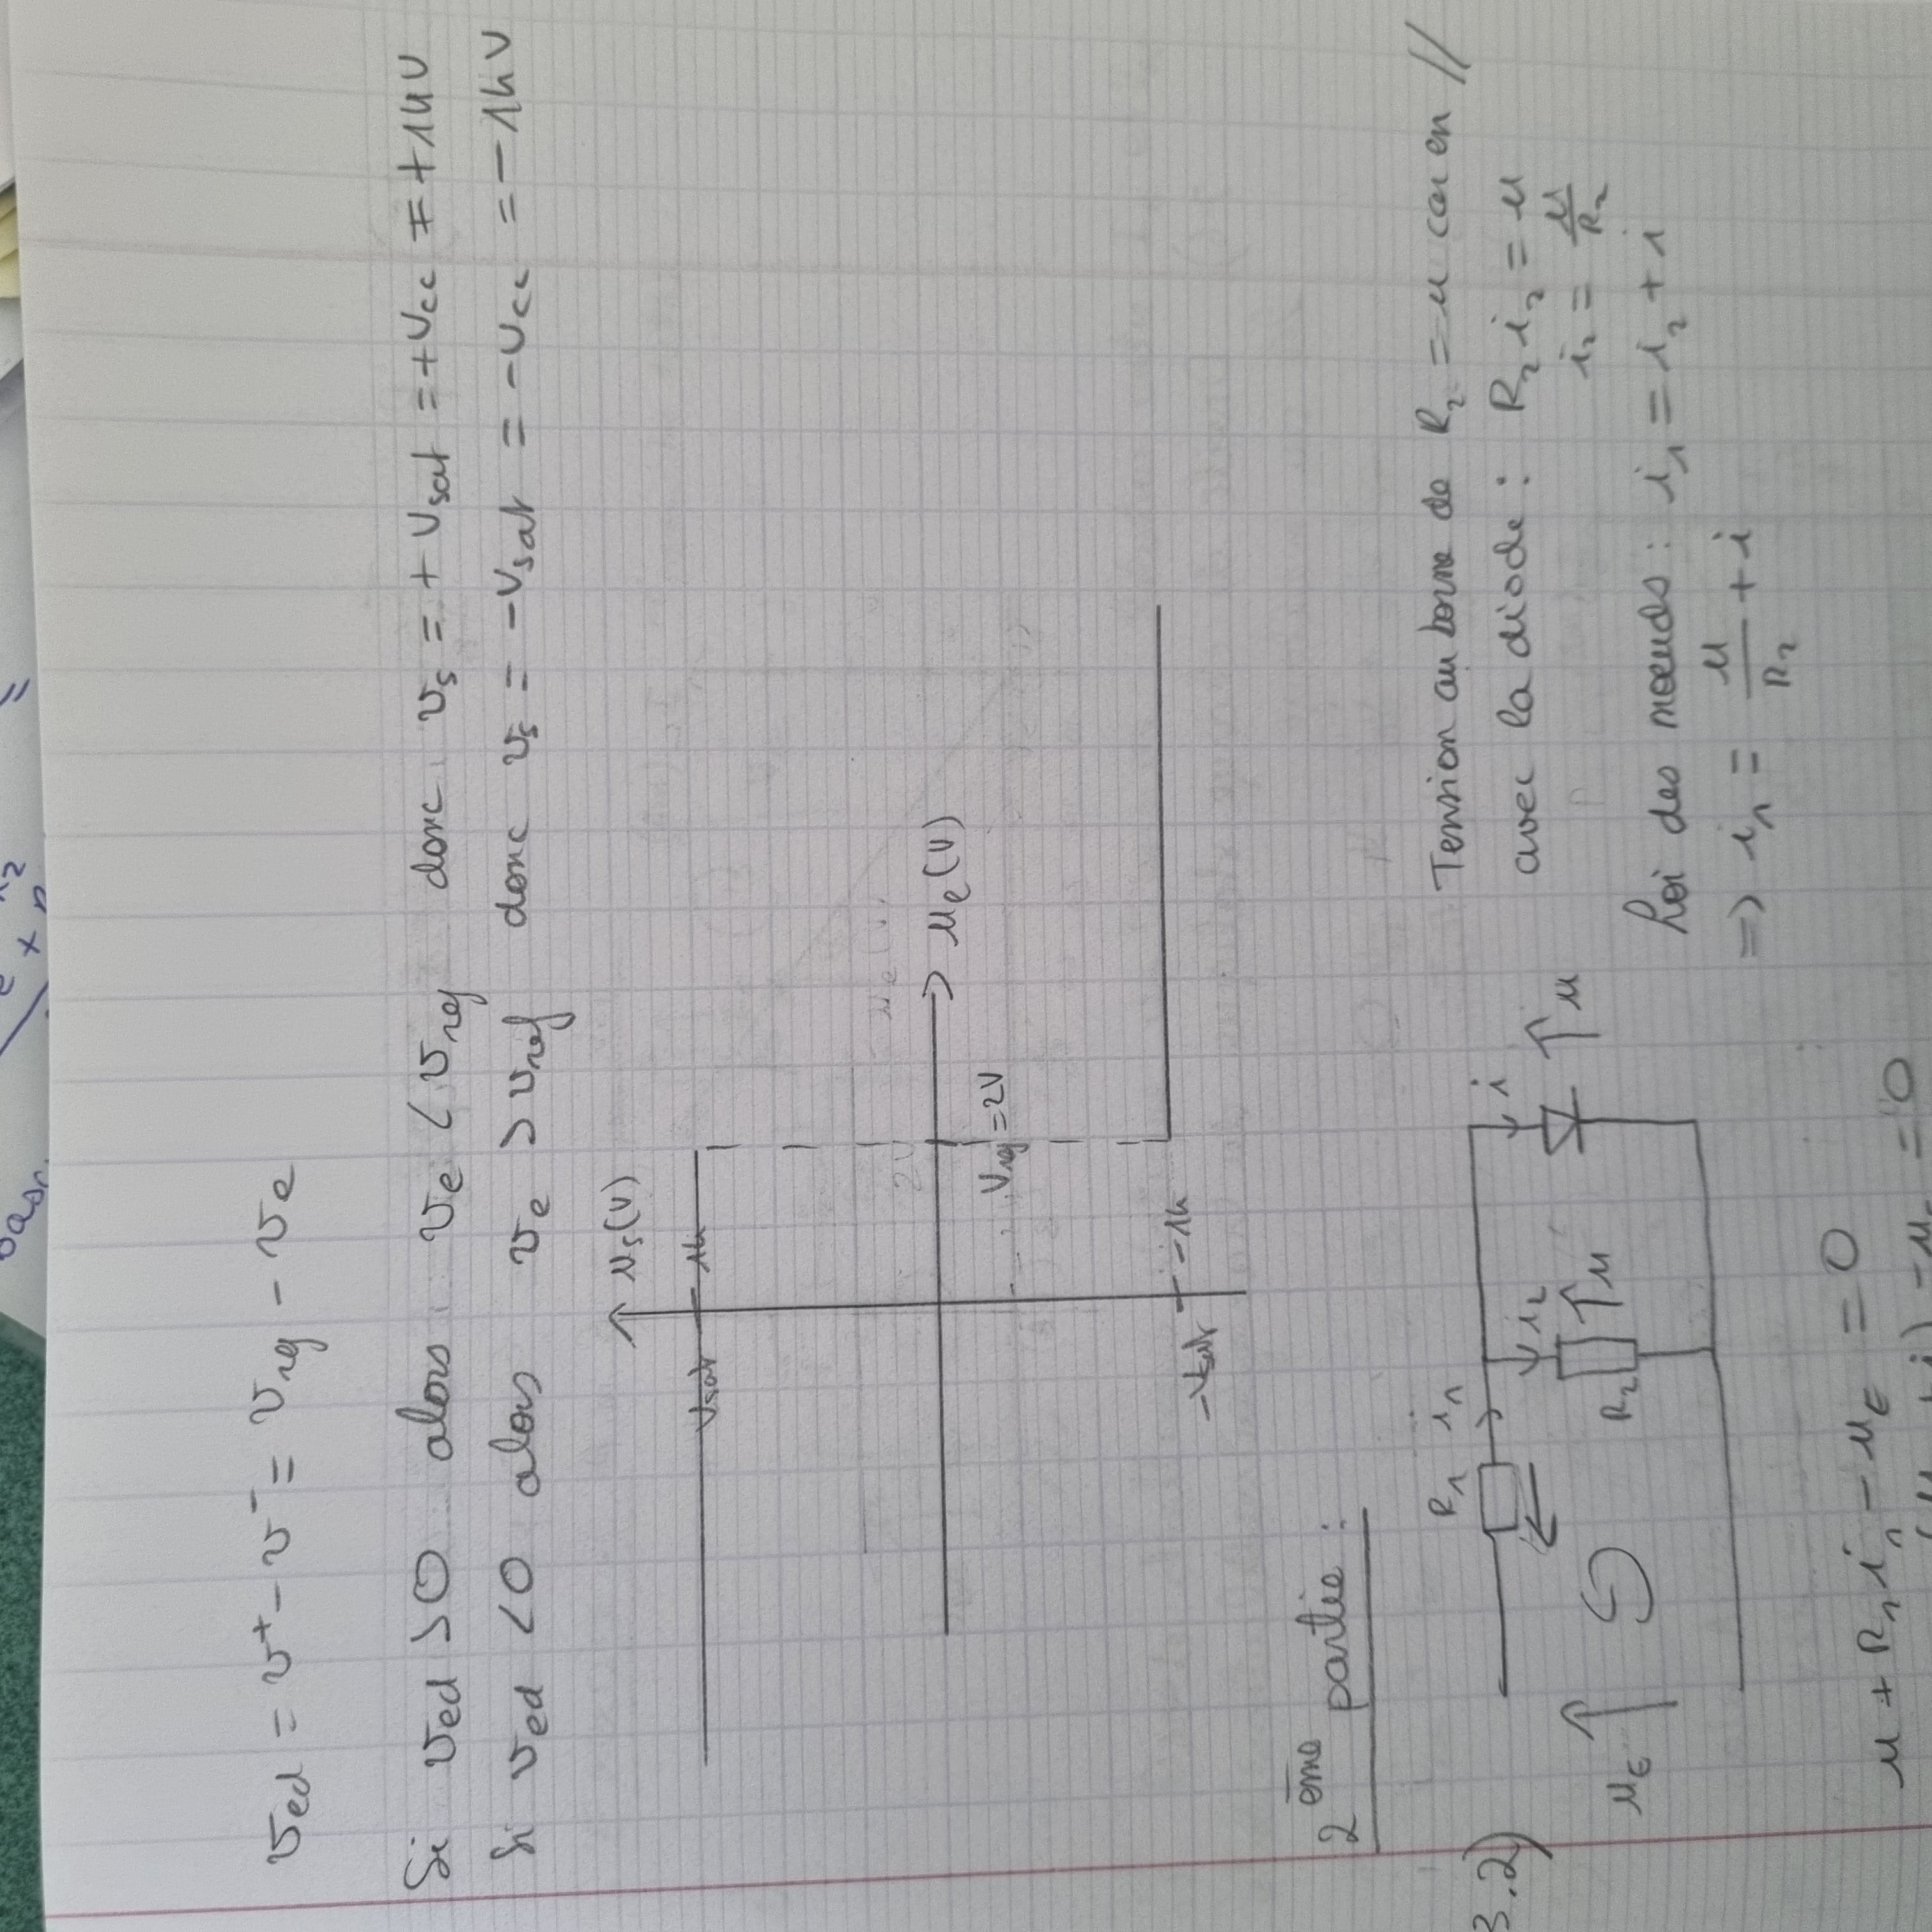 v_ed = v⁺ - v⁻ = v_ref - v_e
Si v_ed > 0 alors v_e < v_ref donc v_s = + V_sat = + V_cc = + 14V
Si v_ed < 0 alors v_e > v_ref donc v_s = - V_sat = - V_cc = - 14V
u_s(V)
V_sat 14
u_e(V)
V_ref = 2V
-V_sat -14
2ème partie :
3.2)
R₁ i₁ i
u_E i₂ R₂ u u
Tension au borne de R₂ = u car en //
avec la diode : R₂ i₂ = u
i₂ = u/R₂
Loi des noeuds : i₁ = i₂ + i
=> i₁ = u/R₂ + i
u + R₁ i₁ - u_E = 0
= 0